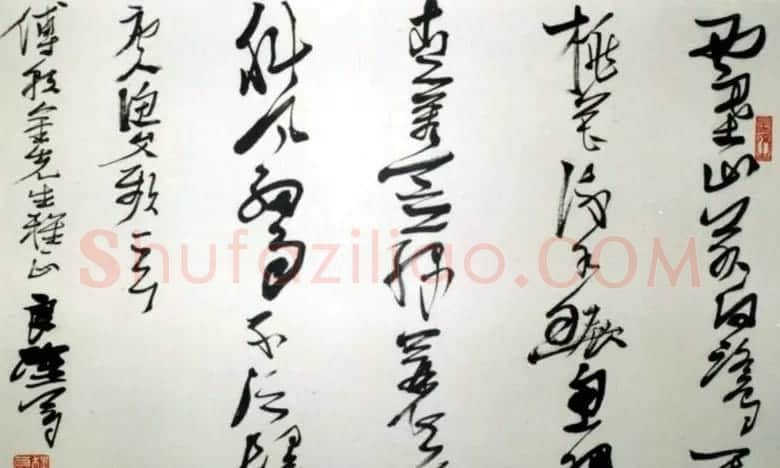 西塞山前白鷺
桃花流水鱖魚肥
青箬笠綠蓑衣
斜风細雨不须歸
唐人漁父歌一首
傅金先生雅正
Shufaziliao.COM